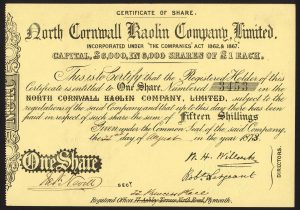 CERTIFICATE OF SHARE.
North Cornwall Kaolin Company, Limited.
INCORPORATED UNDER "THE COMPANIES' ACT 1862, & 1867."
CAPITAL, £6,000, IN 6,000 SHARES OF £1 EACH.
This is to Certify that the Registered Holder of this
Certificate is entitled to One Share, Numbered
NORTH CORNWALL KAOLIN COMPANY, LIMITED, subject to the
regulations of the said Company and that up to this day there has been
paid in respect of such share the sum of Fifteen Shillings
Given under the Common Seal of the said Company,
the day of August 1873.
One Share
DIRECTORS.
SECY
22 Princess Place
Registered Offices Plymouth.